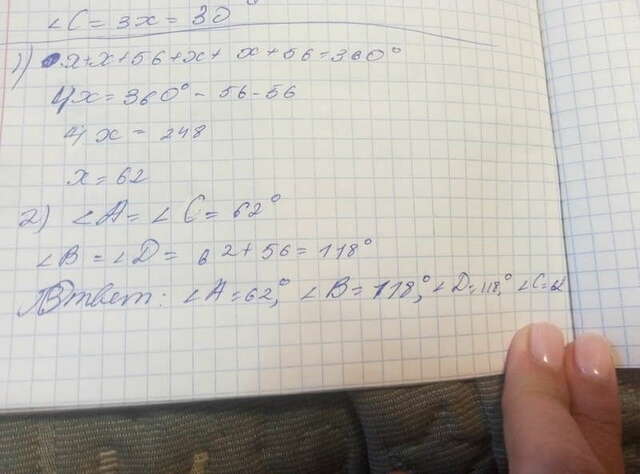 ∠C = 3x = 30°
1) x+x+56+x+x+56=360°
4x = 360° - 56 - 56
4x = 248
x = 62
2) ∠A = ∠C = 62°
∠B = ∠D = 62 + 56 = 118°
Ответ: ∠A = 62°, ∠B = 118°, ∠D = 118°, ∠C = 62